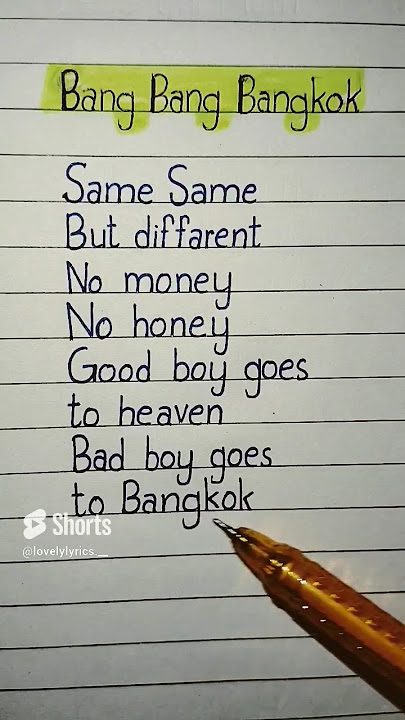 Bang Bang Bangkok
Same Same
But diffarent
No money
No honey
Good boy goes
to heaven
Bad boy goes
to Bangkok
Shorts
@lovelylyrics__